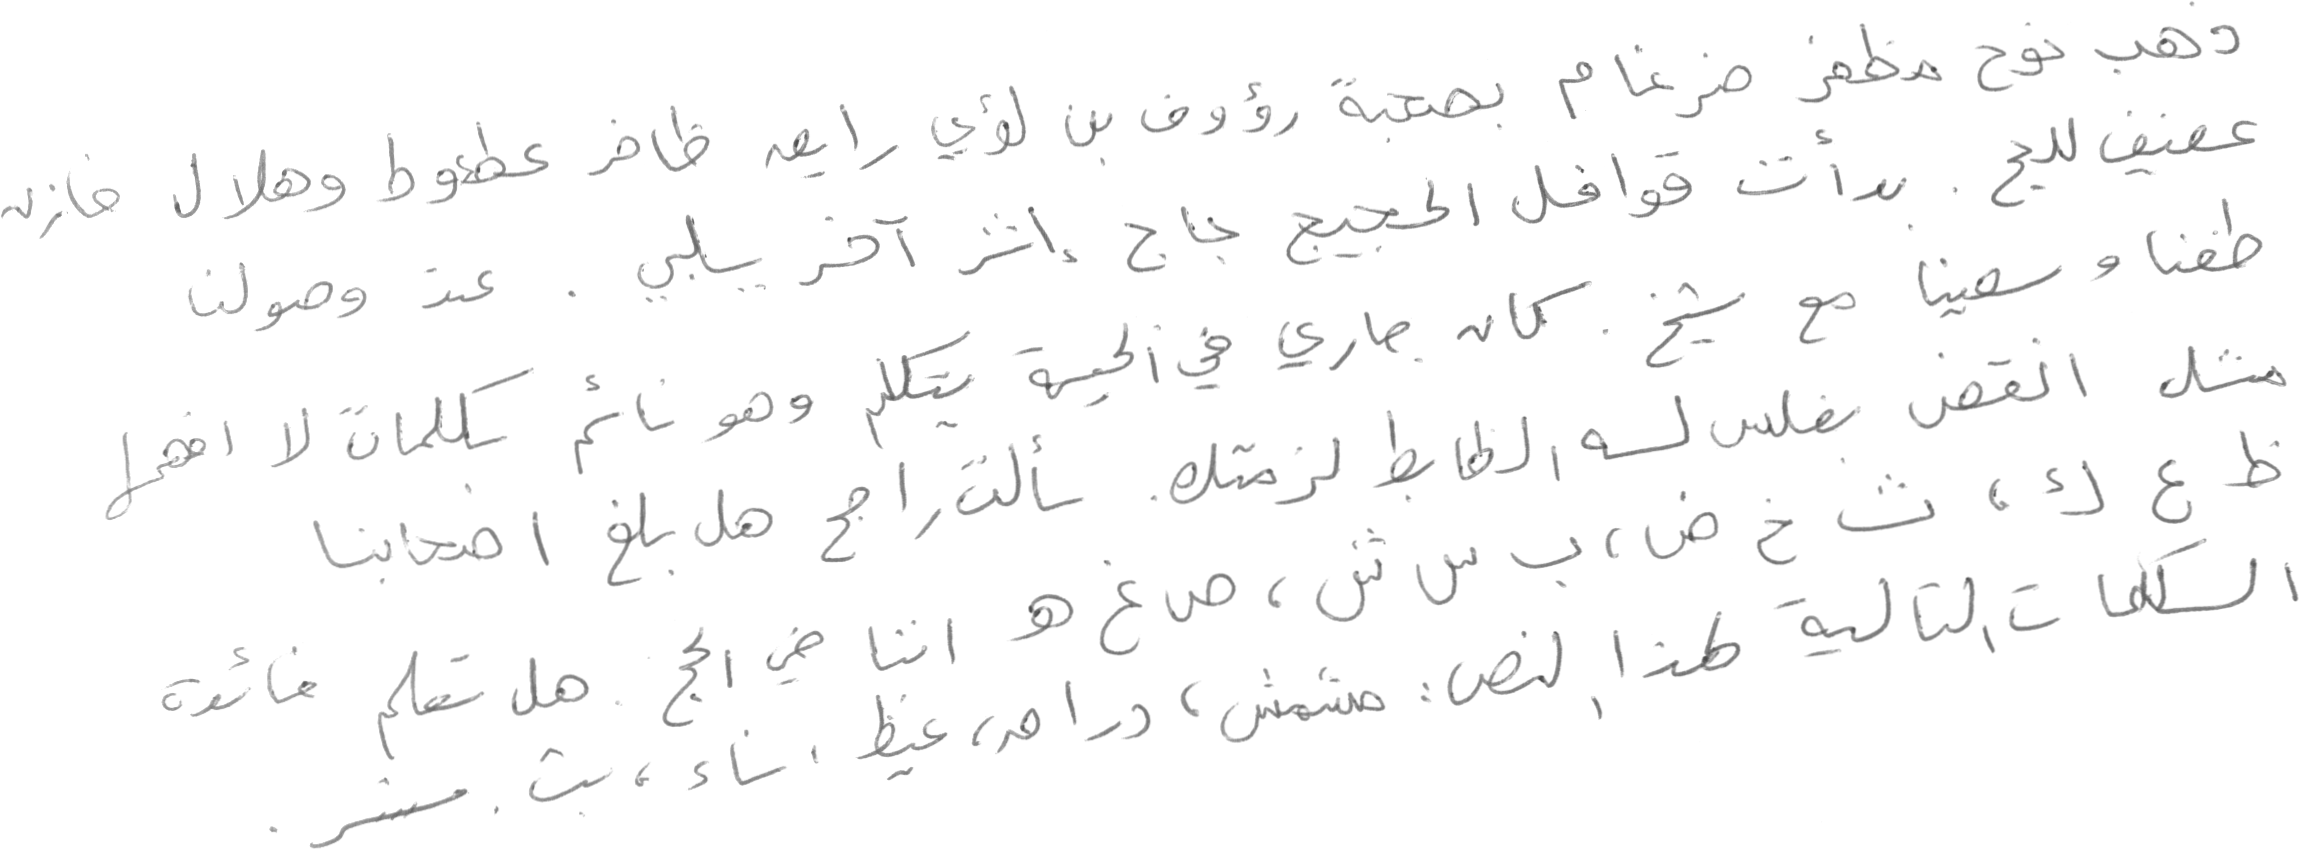 ذهب نوح مظفر ضرغام بصحبة رؤوف بن لؤي رايق ظافر عطعوط وهلال خازن
عفيف للحج . بدأت قوافل الحجيج حاج إثر آخر يلبي . عند وصولنا
طفنا وسعينا مع شيخ . كان جاري في الخيمة يتكلم وهو نائم بكلمات لا افهمها
مثل انقض بفلس لسه الظابط لزمتك . سألت راجح هل بلغ اصحابنا
ظ ع ك ، ث خ ض ، ب س ش ، ص غ هـ اننا في الحج . هل تعلم فائدة
الكلمات التالية لهذا النص : مشمش ، دراهم ، غيظ ، شاء ، بث . ميسر .